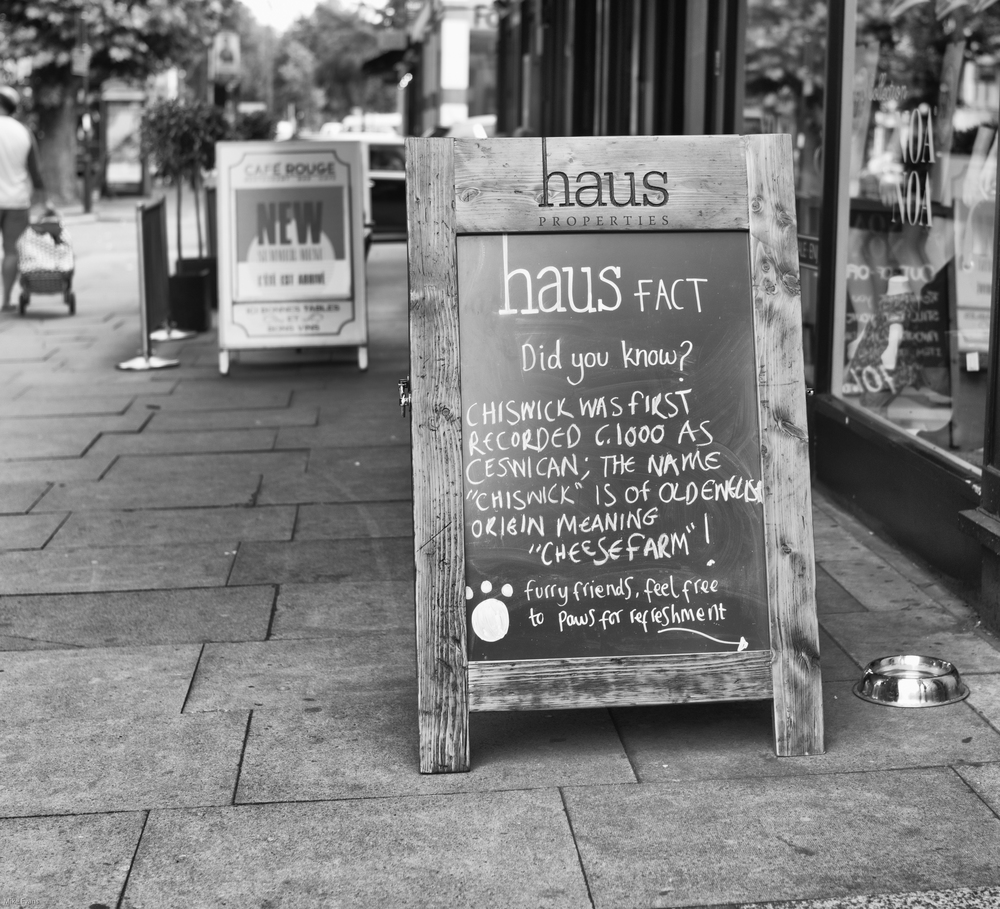 haus
PROPERTIES
haus FACT
Did you know?
CHISWICK WAS FIRST
RECORDED C.1000 AS
CESWICAN; THE NAME
"CHISWICK" IS OF OLD ENGLISH
ORIGIN MEANING
"CHEESEFARM"!
furry friends, feel free
to paws for refreshment
CAFÉ ROUGE
NEW
SUMMER MENU
L'ÉTÉ EST ARRIVÉ
ET
BONS VINS
NOA
NOA
Mike Evans